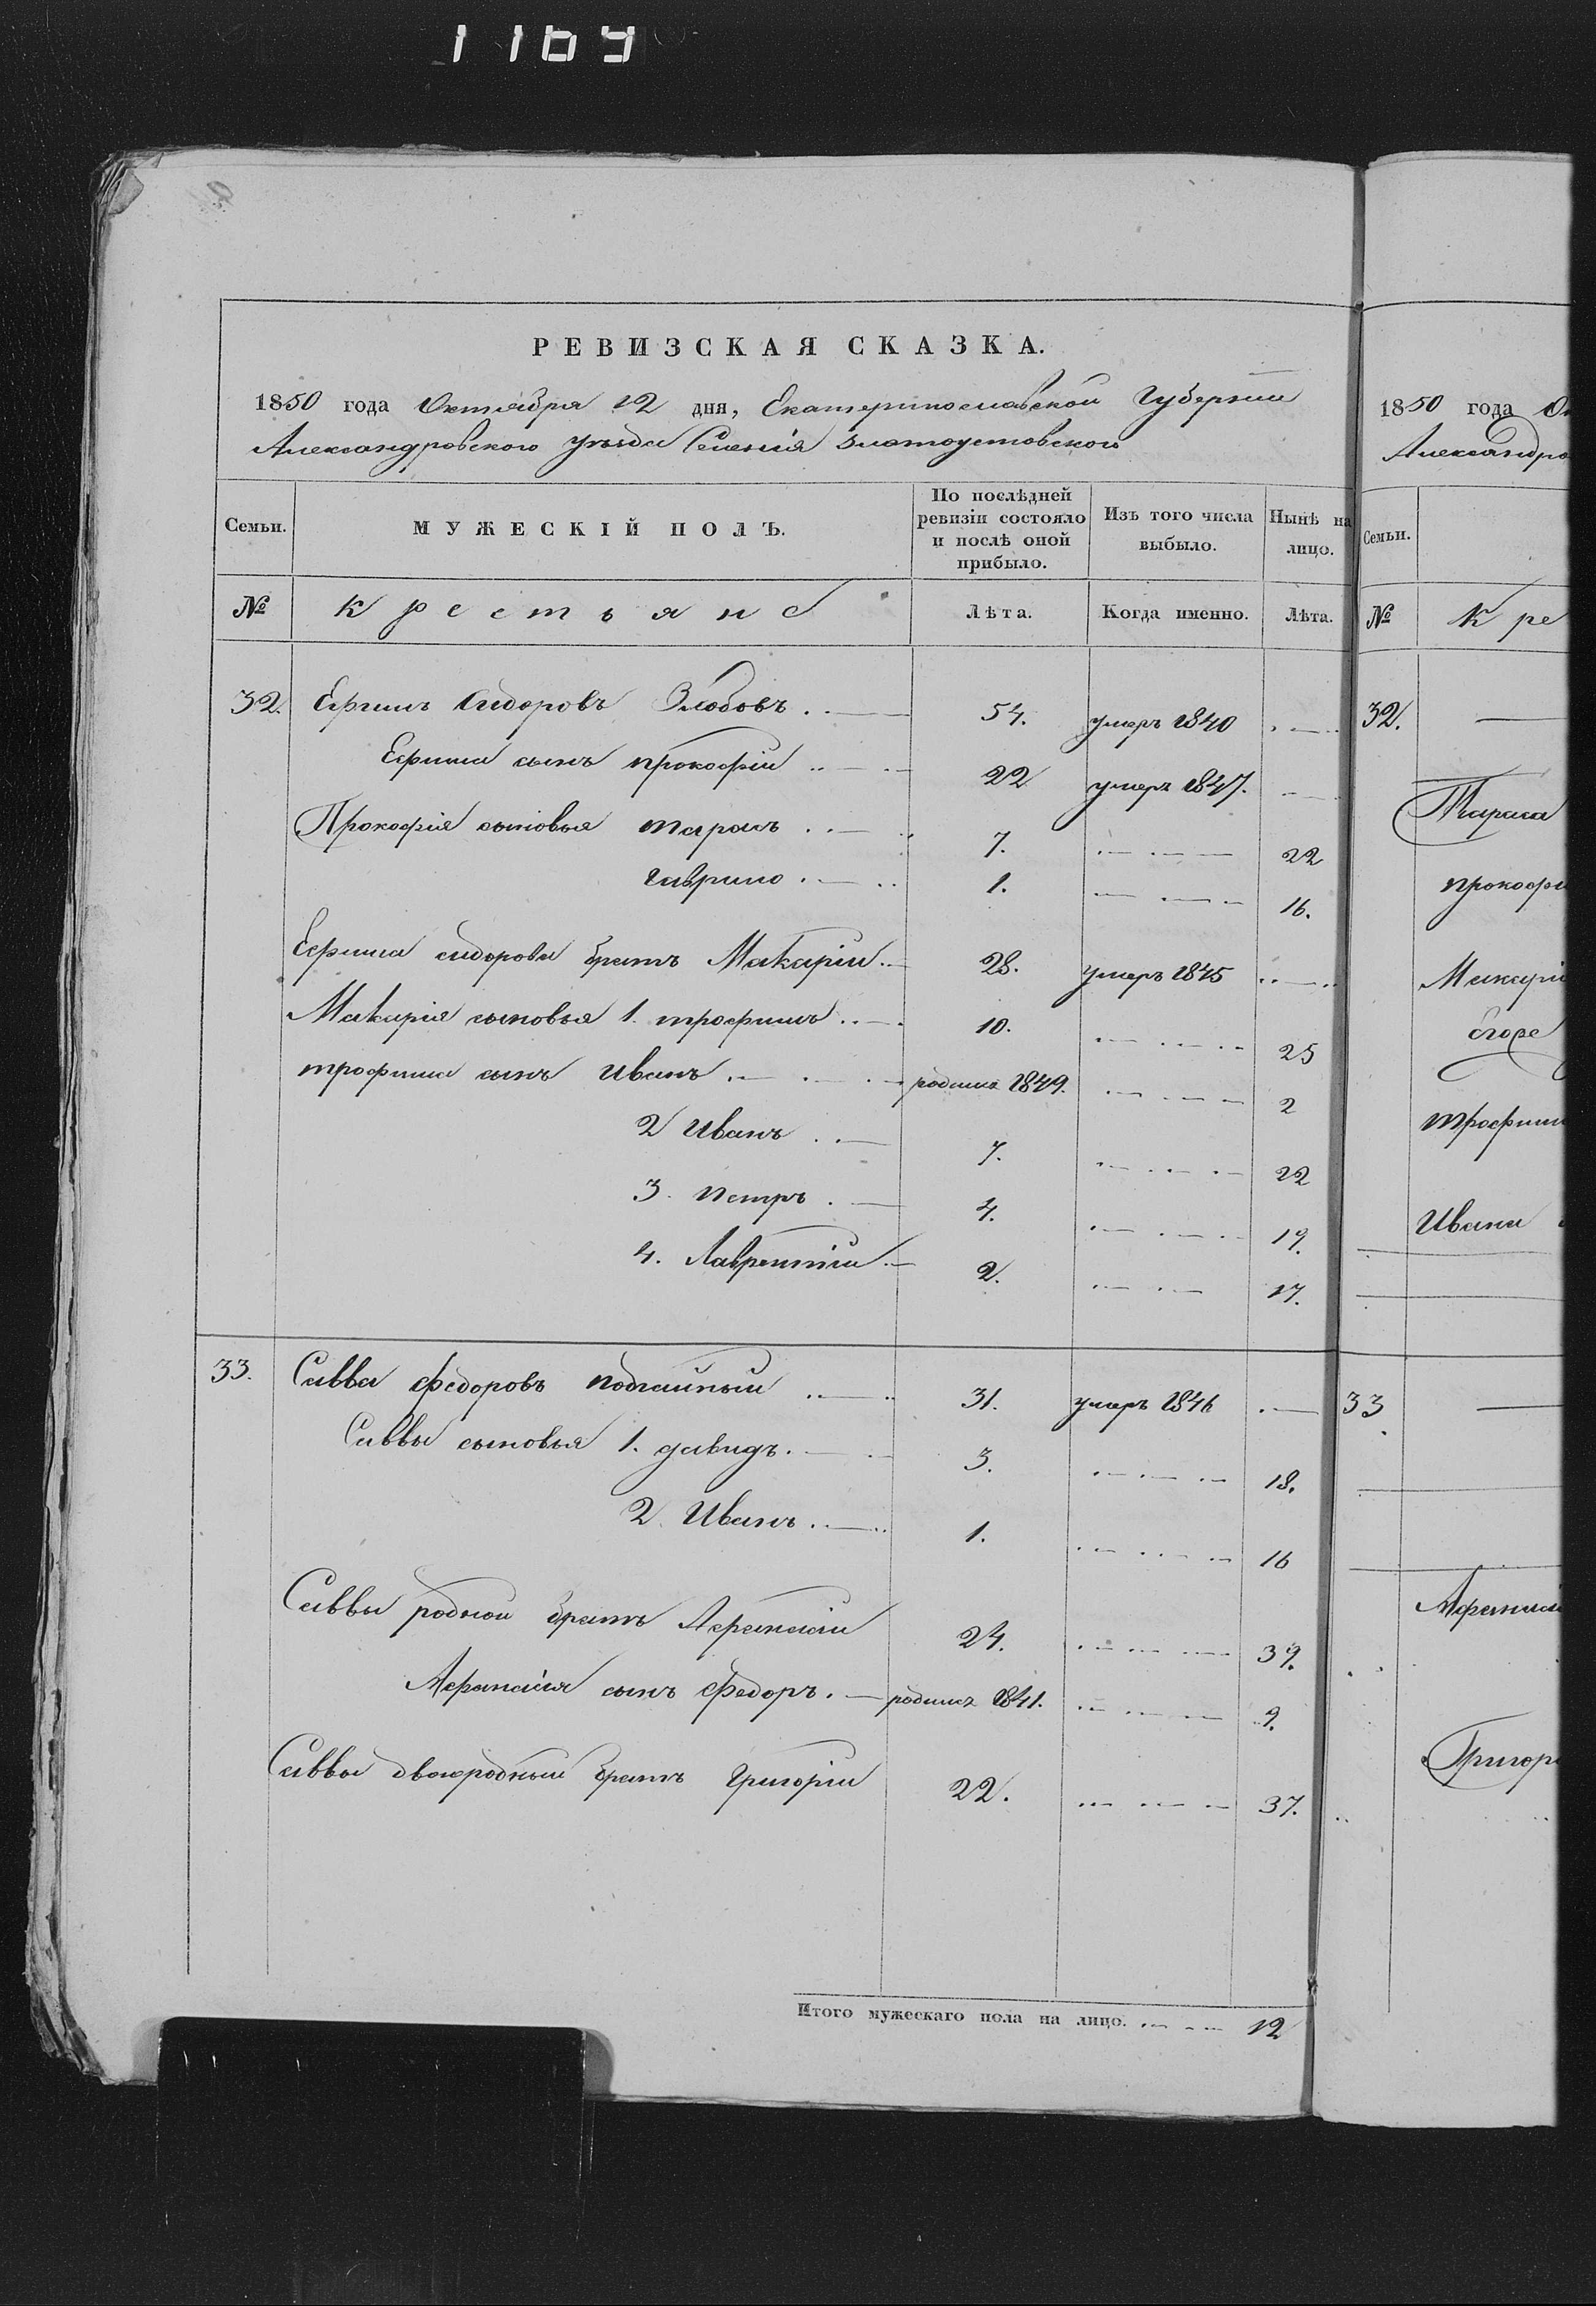 1169
РЕВИЗСКАЯ СКАЗКА.
1850 года Октября 12 дня, Екатеринославской Губернии
Александровского уезда Селения Златоустовского
Семьи.
МУЖЕСКІЙ ПОЛЪ.
По послѣдней ревизіи состояло и послѣ оной прибыло.
Изъ того числа выбыло.
Нынѣ на лицо.
№ Крестьяне Лѣта. Когда именно. Лѣта.
32. Ефимъ Сидоровъ Злобовъ . — 54. умеръ 1840 . —
Ефима сынъ прокофіи .. — 22 умеръ 1847. . —
Прокофія сыновья тарасъ . . — 7. . — . — 22
гаврило . — .. 1. — . — . — 16.
Ефима сидорова братъ Макаріи . — 28. умеръ 1845 .. — ..
Макарія сыновья 1. трофимъ .. — . 10. . — . . — . . — 25
трофима сынъ Иванъ . — . — . — родился 1849. . — . — — 2
2 Иванъ . . — 7. . — . — . — 22
3. петръ . — 4. . — . — . — 19.
4. Лаврентіи . — 2. . — . — 17.
33. Савва федоровъ подгайный .. — .. 31. умеръ 1846 . —
Саввы сыновья 1. давидъ. — . — 3. . — . — . — 18.
2. Иванъ . — .. 1. . — . . — . — 16
Саввы родной братъ Афанасіи 24. . — . — . — 39.
Афанасія сынъ федоръ. — родился 1841. . — . — — 9.
Саввы двоюродный братъ Григоріи 22. . — . — — 37.
Итого мужескаго пола на лицо. . — . — 12
1850 года
Александро
Семьи.
№ Кре
32. —
Тараса
прокофи
Макарі
трофим
Ивана
33 —
Афанасі
Григор